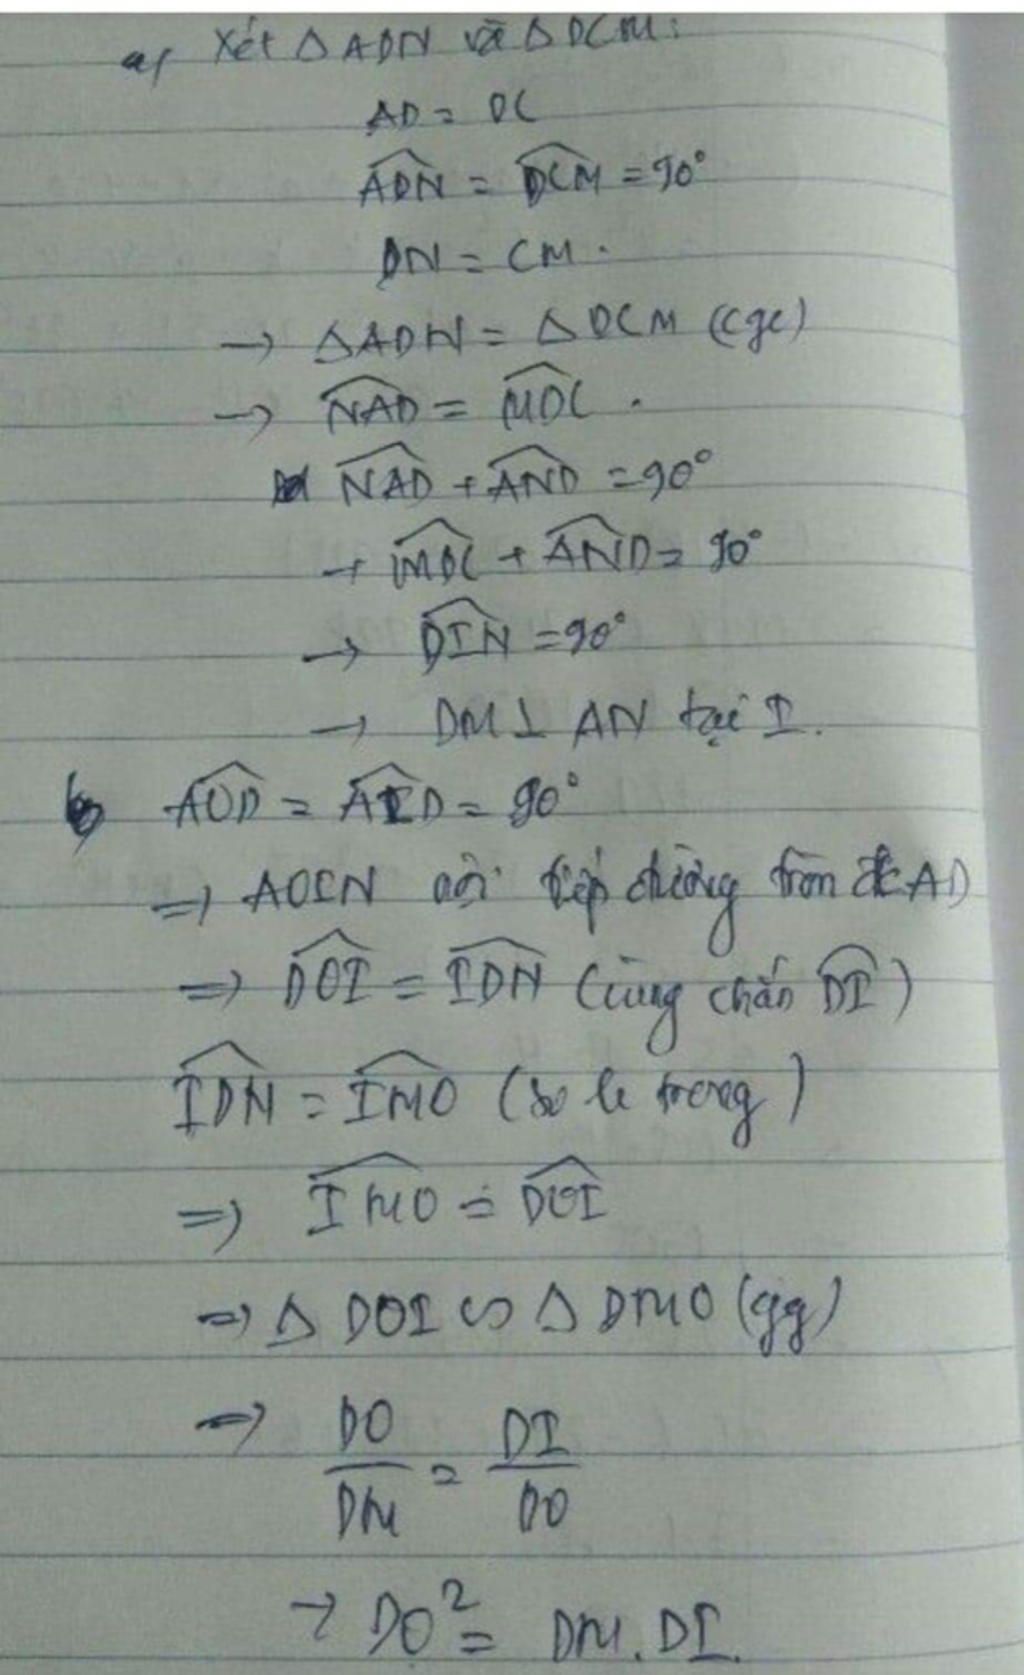 a, Xét Δ ADN và Δ DCM:
AD = DC
\widehat{ADN} = \widehat{DCM} = 90°
DN = CM.
→ ΔADN = ΔDCM (cgc)
→ \widehat{NAD} = \widehat{MDC}.
\widehat{NAD} + \widehat{AND} = 90°
→ \widehat{MDC} + \widehat{AND} = 90°
→ \widehat{DIN} = 90°
→ DM ⊥ AN tại I.
b, \widehat{AOD} = \widehat{AID} = 90°
=> AOIN nội tiếp đường tròn đk AD
=> \widehat{DOI} = \widehat{IDN} (cùng chắn \widehat{DI})
\widehat{IDN} = \widehat{IMO} (so le trong)
=> \widehat{IMO} = \widehat{DOI}
=> Δ DOI ∽ Δ DMO (gg)
=> DO/DM = DI/DO
→ DO² = DM.DI.